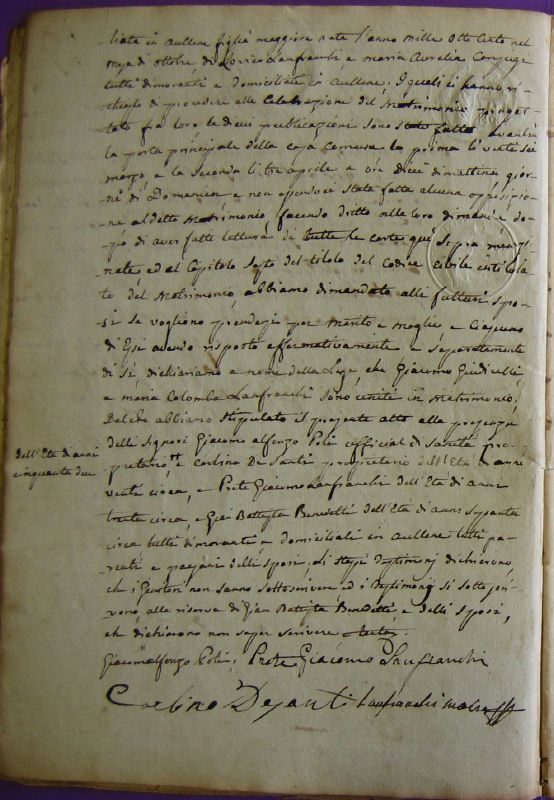 liata in Aullene figlia maggiore nata l'anno mille otto cento nel
mese di Ottobre di Lanfranchi e maria Aurelia Conjugi
tutti dimoranti e domiciliati in Aullene; I quali ci hanno ri-
chiesto di procedere alla Celebrazione del Matrimonio proget-
tato fra loro le di cui pubblicazioni sono state fatte avanti
la porta principale della casa Comune la prima li vente sei
marzo, e la seconda li tre aprile a ore dieci di mattina gior-
ni di Domenica e non essendoci stata fatta alcuna opposizio-
ne al detto Matrimonio, facendo dritto alla loro dimanda do-
po di aver fatto lettura di tutte le carte qui sopra menzi-
nate, ed al Capitolo Sesto del titolo del Codice civile intitola-
to del Matrimonio, abbiamo dimandato alli futuri spo-
si se vogliono prendersi per Marito e Moglie, e Ciascuno
di Essi avendo risposto affermativamente e separatamente
di Si dichiariamo a nome della Legge, che Giacomo Giudicelli
e maria Colomba Lanfranchi sono uniti in Matrimonio;
Del che abbiamo stipulato il presente atto alla presenza
delli Signori Giacomo alfonzo Poli ufficial di Sanità pro-
dell'Età di anni
cinquanta due
prietario, e Corbino De Santi proprietario dell'Età di anni
vente circa, e Prete Giacomo Lanfranchi dell'Età di anni
trenta circa, e Gian Battista Benedetti dell'Età di anni sessanta
circa tutti dimoranti e domiciliati in Aullene tutti pa-
renti e paesani delli sposi; Li stessi Testimonj dichiarono,
che i Genitori non sanno sottoscrivere ed i Testimonj si sottoscri-
vono, alla riserva di Gian Battista Benedetti e delli sposi,
che dichiarono non saper scrivere
Giacomalfonzo Poli; Prete Giacomo Lanfranchi
Corbino Desanti Lanfranchi